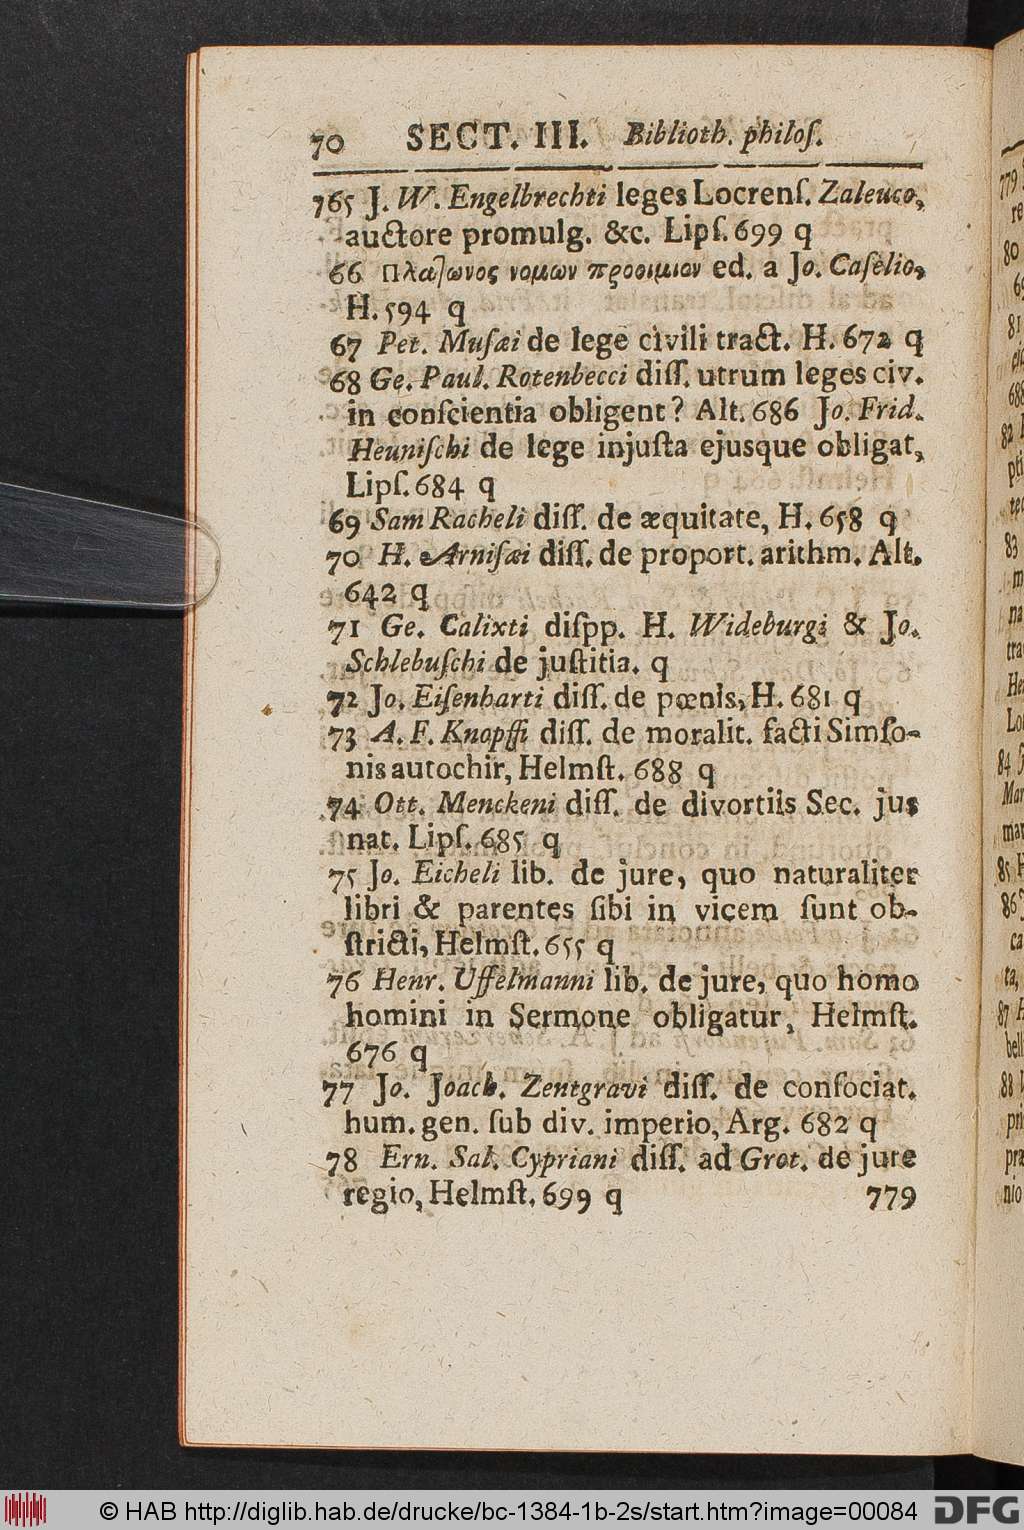 70 SECT. III. Biblioth. philoſ.
765 J. W. Engelbrechti leges Locrenſ. Zaleuco,
auctore promulg. &c. Lipſ. 699 q
66 Πλάτωνος νομων προοιμιον ed. a Jo. Caſelio,
H. 594 q
67 Pet. Muſæi de lege civili tract. H. 672 q
68 Ge. Paul. Rotenbecci diſſ. utrum leges civ.
in conſcientia obligent? Alt. 686 Jo. Frid.
Heuniſchi de lege injuſta ejusque obligat,
Lipſ. 684 q
69 Sam Racheli diſſ. de æquitate, H. 658 q
70 H. Arniſæi diſſ. de proport. arithm. Alt.
642 q
71 Ge. Calixti diſpp. H. Wideburgi & Jo.
Schlebuſchi de juſtitia. q
72 Jo. Eiſenharti diſſ. de pœnis, H. 681 q
73 A. F. Knopffi diſſ. de moralit. facti Simſo-
nis autochir, Helmſt. 688 q
74 Ott. Menckeni diſſ. de divortiis Sec. jus
nat. Lipſ. 685 q
75 Jo. Eicheli lib. de jure, quo naturaliter
libri & parentes ſibi in vicem ſunt ob-
ſtricti, Helmſt. 655 q
76 Henr. Uffelmanni lib. de jure, quo homo
homini in Sermone obligatur, Helmſt.
676 q
77 Jo. Joach. Zentgravi diſſ. de conſociat.
hum. gen. ſub div. imperio, Arg. 682 q
78 Ern. Sal. Cypriani diſſ. ad Grot. de jure
regio, Helmſt. 699 q 779
© HAB http://diglib.hab.de/drucke/bc-1384-1b-2s/start.htm?image=00084 DFG